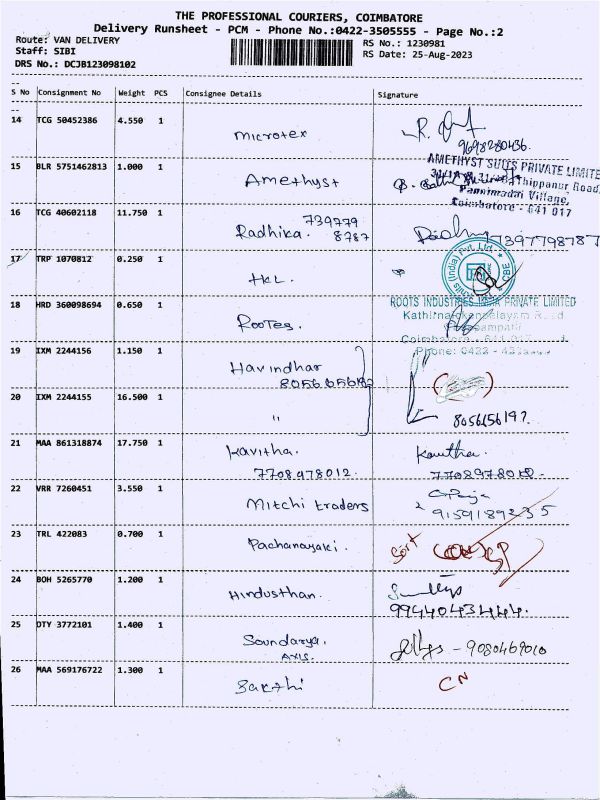 THE PROFESSIONAL COURIERS, COIMBATORE
Delivery Runsheet - PCM - Phone No.:0422-3505555 - Page No.:2
Route: VAN DELIVERY
RS No.: 1230981
Staff: SIBI
RS Date: 25-Aug-2023
DRS No.: DCJB123098102
S No Consignment No Weight PCS Consignee Details Signature
14 TCG 50452386 4.550 1 Microtex
9698280436.
15 BLR 5751462813 1.000 1 Amethyst
AMETHYST SUITS PRIVATE LIMITE
Thippanur Road
Pannimadai Village,
Coimbatore - 641 017
16 TCG 40602118 11.750 1 Radhika. 739779 8787
7397798787
17 TRP 1070812 0.250 1 HKL.
18 HRD 360098694 0.650 1 Rootes.
ROOTS INDUSTRIES INDIA PRIVATE LIMITED
19 IXM 2244156 1.150 1 Havindhar
20 IXM 2244155 16.500 1 "
21 MAA 861318874 17.750 1 Kavitha. Kavitha
7708978012. 7708978012.
22 VRR 7260451 3.550 1 Mitchi traders
9159189235
23 TRL 422083 0.700 1 Pachanayaki.
24 BOH 5265770 1.200 1 Hindusthan.
9944043444.
25 DTY 3772101 1.400 1 Soundarya. AXIS. - 9080469010
26 MAA 569176722 1.300 1 Sakthi CN